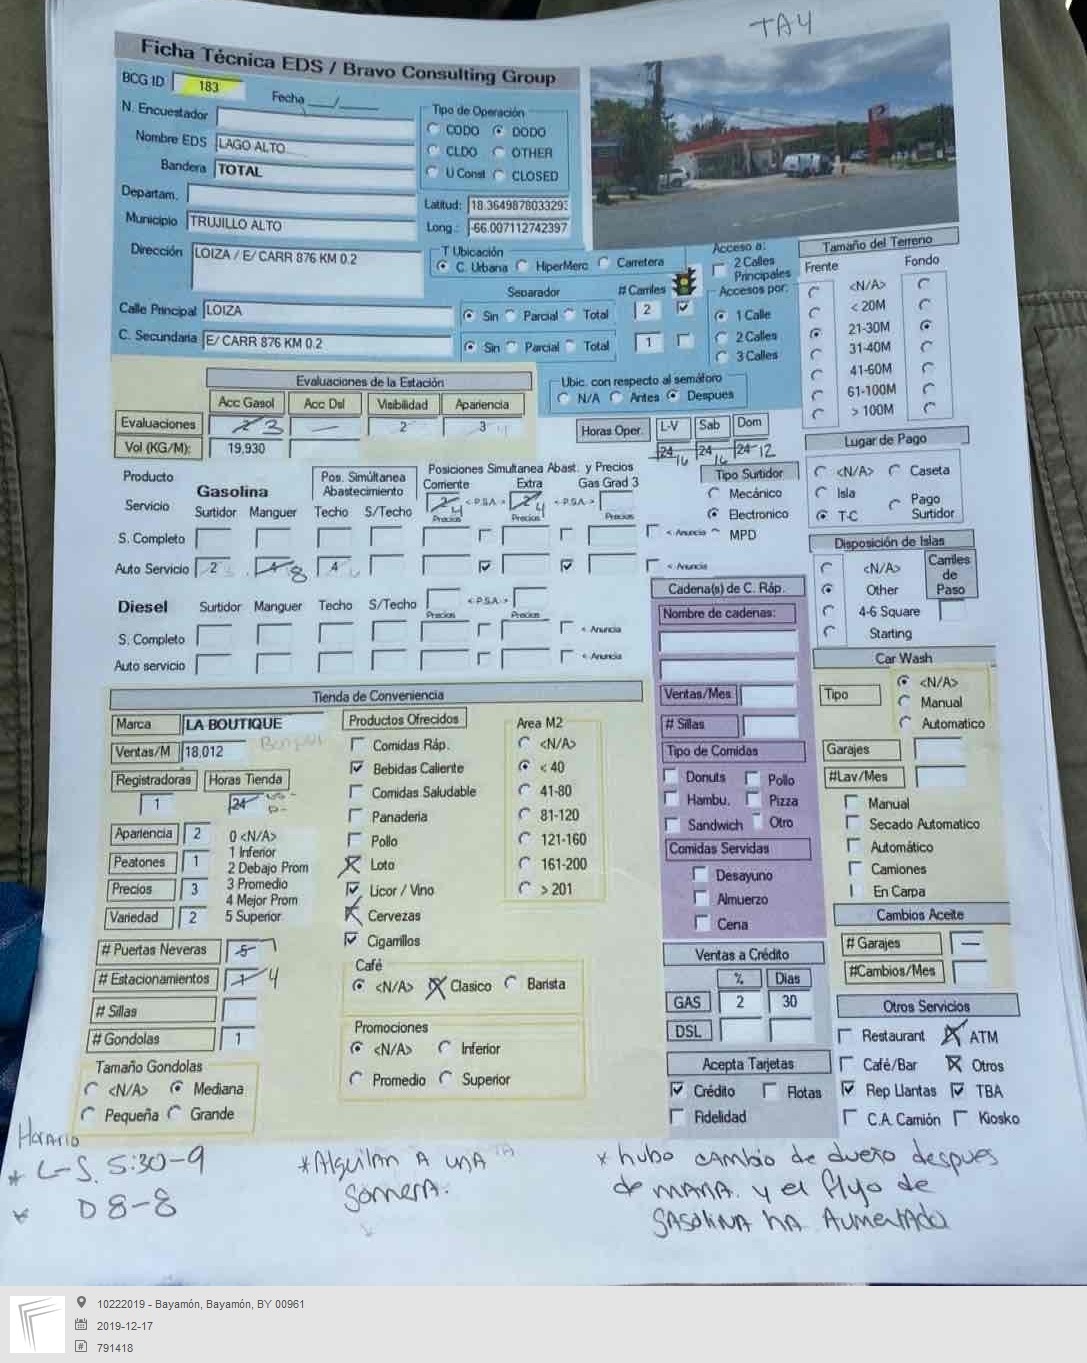 TA4
Ficha Técnica EDS / Bravo Consulting Group
BCG ID 183
Fecha __/__/__
N. Encuestador
Nombre EDS LAGO ALTO
Bandera TOTAL
Departam.
Municipio TRUJILLO ALTO
Tipo de Operación
CODO DODO
CLDO OTHER
U Const CLOSED
Latitud: 18.3649878033293
Long.: -66.007112742397
Dirección LOIZA / E/ CARR 876 KM 0.2
T Ubicación
C. Urbana HiperMerc Carretera
Separador # Carriles
Calle Principal LOIZA Sin Parcial Total 2
C. Secundaria E/ CARR 876 KM 0.2 Sin Parcial Total 1
Acceso a:
2 Calles Principales
Accesos por:
1 Calle
2 Calles
3 Calles
Tamaño del Terreno
Frente Fondo
<N/A>
< 20M
21-30M
31-40M
41-60M
61-100M
> 100M
Evaluaciones de la Estación
Acc Gasol Acc Dsl Visibilidad Apariencia
Evaluaciones 2 3 — 2 3 4
Vol (KG/M): 19,930
Ubic. con respecto al semáforo
N/A Antes Despues
Horas Oper. L-V Sab Dom
24 16 24 16 24 12
Lugar de Pago
<N/A> Caseta
Isla Pago Surtidor
T-C
Producto
Servicio
Gasolina
Surtidor Manguer
Pos. Simúltanea Abastecimiento
Techo S/Techo
Posiciones Simultanea Abast. y Precios
Corriente Extra Gas Grad 3
2 4 < P.S.A. > 2 4 < P.S.A. >
Precios Precios Precios
S. Completo < Anuncia
Auto Servicio 2 4 8 4 < Anuncia
Tipo Surtidor
Mecánico
Electronico
MPD
Disposición de Islas
<N/A>
Other
4-6 Square
Starting
Carriles de Paso
Diesel Surtidor Manguer Techo S/Techo < P.S.A. >
Precios Precios
S. Completo < Anuncia
Auto servicio < Anuncia
Cadena(s) de C. Ráp.
Nombre de cadenas:
Ventas/Mes
# Sillas
Tipo de Comidas
Donuts Pollo
Hambu. Pizza
Sandwich Otro
Comidas Servidas
Desayuno
Almuerzo
Cena
Car Wash
Tipo
<N/A>
Manual
Automatico
Garajes
#Lav/Mes
Manual
Secado Automatico
Automático
Camiones
En Carpa
Cambios Aceite
# Garajes —
#Cambios/Mes
Tienda de Conveniencia
Marca LA BOUTIQUE
Ventas/M 18,012
Registradoras Horas Tienda
1 24
Apariencia 2
Peatones 1
Precios 3
Variedad 2
0 <N/A>
1 Inferior
2 Debajo Prom
3 Promedio
4 Mejor Prom
5 Superior
# Puertas Neveras 5 7
# Estacionamientos 7 4
# Sillas
# Gondolas 1
Tamaño Gondolas
<N/A> Mediana
Pequeña Grande
Productos Ofrecidos
Comidas Ráp.
Bebidas Caliente
Comidas Saludable
Panaderia
Pollo
Loto
Licor / Vino
Cervezas
Cigarrillos
Area M2
<N/A>
< 40
41-80
81-120
121-160
161-200
> 201
Café
<N/A> Clasico Barista
Promociones
<N/A> Inferior
Promedio Superior
Ventas a Crédito
% Dias
GAS 2 30
DSL
Acepta Tarjetas
Crédito Flotas
Fidelidad
Otros Servicios
Restaurant ATM
Café/Bar Otros
Rep Llantas TBA
C.A. Camión Kiosko
Horario
* L-S. 5:30-9
* D 8-8
*Alquilan A una
gomera.
* hubo cambio de dueño despues
de MARIA. y el flujo de
gasolina ha Aumentado
10222019 - Bayamón, Bayamón, BY 00961
2019-12-17
791418